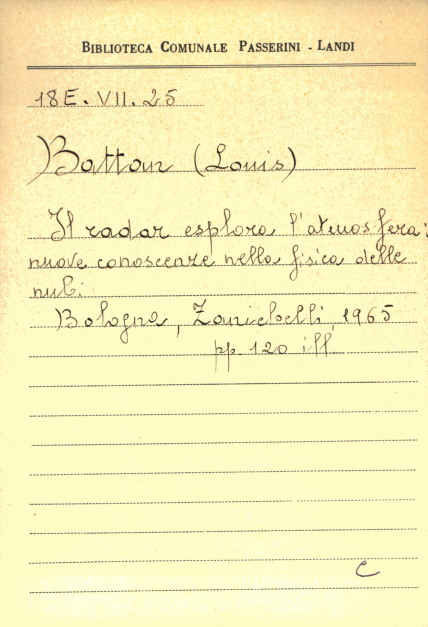 BIBLIOTECA COMUNALE PASSERINI - LANDI
18E. VII. 25
Battan (Louis)
Il radar esplora l'atmosfera:
nuove conoscenze nella fisica delle
nubi
Bologna, Zanichelli, 1965
pp. 120 ill
C